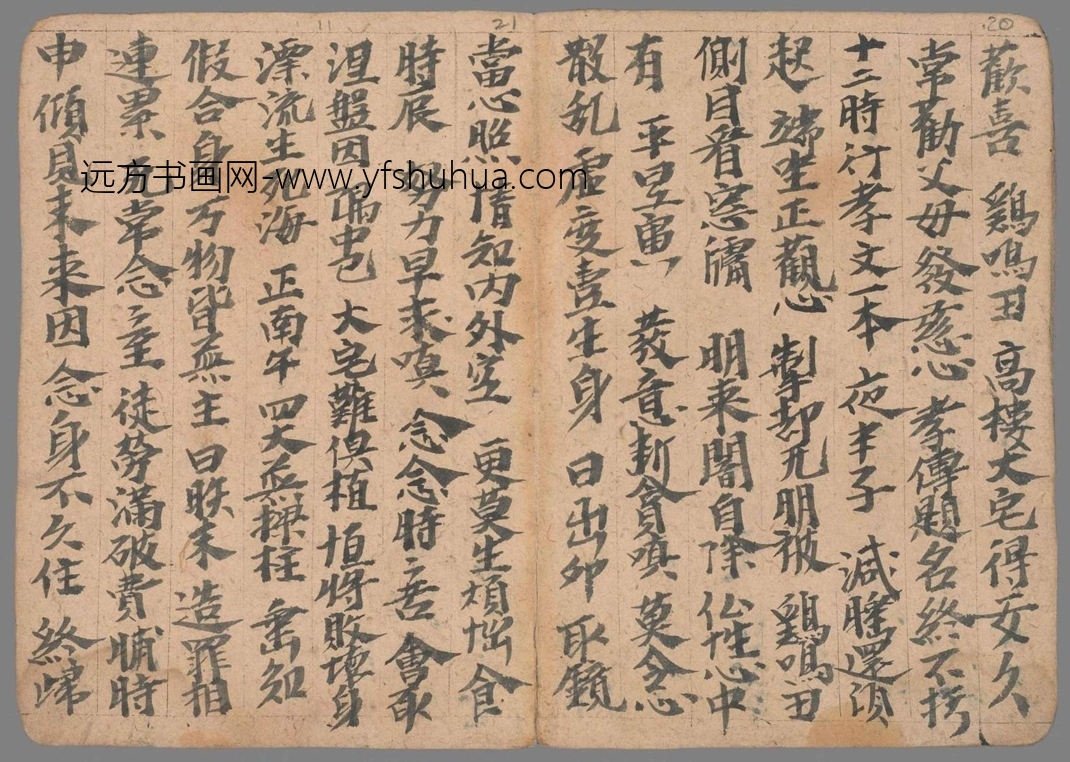 20
歡喜 鷄鳴丑 高樓大宅得安久
常勸父母發慈心 孝傳題名終不朽
十二時行孝文一本 夜半子 減睡還須
起 端坐正觀心 掣却无明被 鷄鳴丑
側目看窓牖 明来闇自除 仏性心中
有 平旦寅 發意斷貪嗔 莫令心
散乱 虛度一生身 日出卯 取鏡
21
11
當心照 情知内外空 更莫生煩惱 食
時辰 努力早求 念念時々苦 會取
涅盤因 隅中巳 大宅難俱 恒將敗壞身
漂流生死海 正南午 四大无樑柱 須知
假合身 万物皆无主 日昳未 造罪相
連累 常念々至 徒勞漫破費 晡時
申 須見未来因 念身不久住 終歸
远方书画网-www.yfshuhua.com